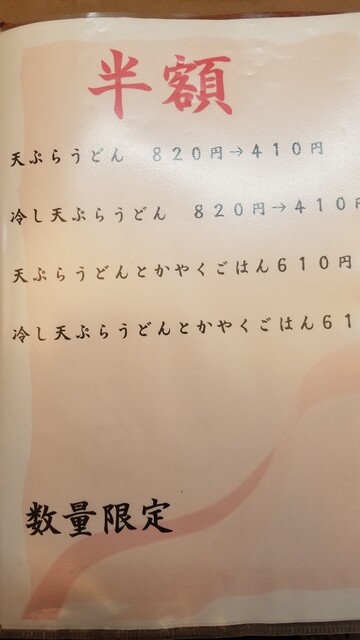 半額
天ぷらうどん　８２０円→４１０円
冷し天ぷらうどん　８２０円→４１０円
天ぷらうどんとかやくごはん６１０円
冷し天ぷらうどんとかやくごはん６１
数量限定